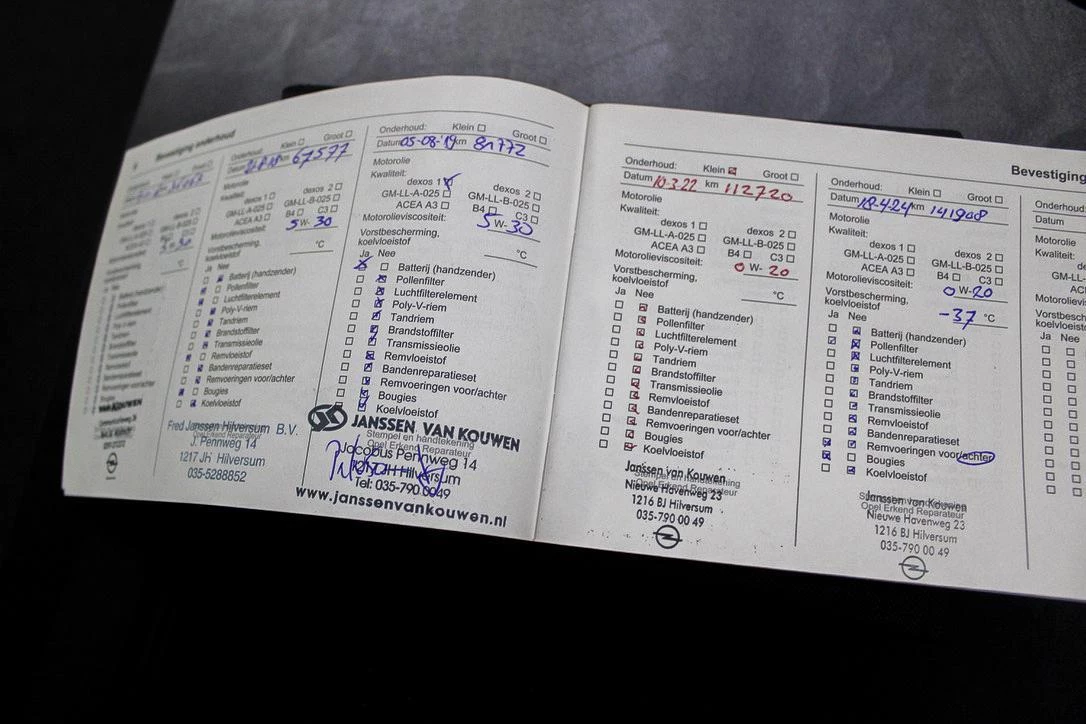 Bevestiging onderhoud
Onderhoud: Klein Groot
km 67577
Motorolie
Kwaliteit:
dexos 1 dexos 2
GM-LL-A-025 GM-LL-B-025
ACEA A3 B4 C3
Motorolieviscositeit: 5 W- 30
Vorstbescherming, °C
koelvloeistof
Ja Nee
Batterij (handzender)
Pollenfilter
Luchtfilterelement
Poly-V-riem
Tandriem
Brandstoffilter
Transmissieolie
Remvloeistof
Bandenreparatieset
Remvoeringen voor/achter
Bougies
Koelvloeistof
Fred Janssen Hilversum B.V.
Opel Erkend Reparateur
J. Pennweg 14
1217 JH Hilversum
035-5288852
Onderhoud: Klein Groot
Datum 05-08-'19 km 81772
Motorolie
Kwaliteit:
dexos 1 dexos 2
GM-LL-A-025 GM-LL-B-025
ACEA A3 B4 C3
Motorolieviscositeit: 5 W- 30
Vorstbescherming, °C
koelvloeistof
Ja Nee
Batterij (handzender)
Pollenfilter
Luchtfilterelement
Poly-V-riem
Tandriem
Brandstoffilter
Transmissieolie
Remvloeistof
Bandenreparatieset
Remvoeringen voor/achter
Bougies
Koelvloeistof
JANSSEN VAN KOUWEN
Stempel en handtekening
Opel Erkend Reparateur
Jacobus Pennweg 14
Hilversum
Tel: 035-790 0049
www.janssenvankouwen.nl
Onderhoud: Klein Groot
Datum 10-3-22 km 112720
Motorolie
Kwaliteit:
dexos 1 dexos 2
GM-LL-A-025 GM-LL-B-025
ACEA A3 B4 C3
Motorolieviscositeit: 0 W- 20
Vorstbescherming, °C
koelvloeistof
Ja Nee
Batterij (handzender)
Pollenfilter
Luchtfilterelement
Poly-V-riem
Tandriem
Brandstoffilter
Transmissieolie
Remvloeistof
Bandenreparatieset
Remvoeringen voor/achter
Bougies
Koelvloeistof
Janssen van Kouwen
Stempel en handtekening
Opel Erkend Reparateur
Nieuwe Havenweg 23
1216 BJ Hilversum
035-790 00 49
Bevestiging
Onderhoud: Klein Groot
Datum 18-4-24 km 141908
Motorolie
Kwaliteit:
dexos 1 dexos 2
GM-LL-A-025 GM-LL-B-025
ACEA A3 B4 C3
Motorolieviscositeit: 0 W- 20
Vorstbescherming, -37 °C
koelvloeistof
Ja Nee
Batterij (handzender)
Pollenfilter
Luchtfilterelement
Poly-V-riem
Tandriem
Brandstoffilter
Transmissieolie
Remvloeistof
Bandenreparatieset
Remvoeringen voor/achter
Bougies
Koelvloeistof
Janssen van Kouwen
Opel Erkend Reparateur
Nieuwe Havenweg 23
1216 BJ Hilversum
035-790 00 49
Onderhoud:
Datum
Motorolie
Kwaliteit:
Ja Nee